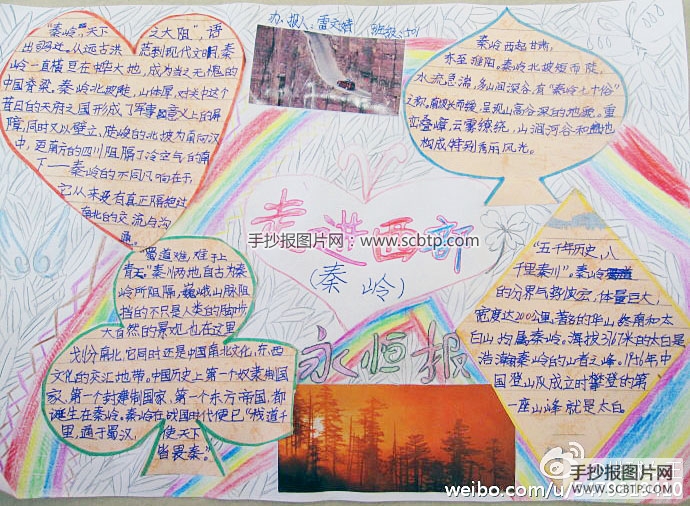 办报人:雷文婧 班级:501
"秦岭,天下之大阻",语
出《　　》。从远古洪荒到现代文明,秦
岭一直横亘在中华大地,成为当之无愧的
中国脊梁。秦岭北坡陡,山体厚,对关中这个
昔日的天府之国形成了军事意义上的屏
障,同时又以壁立,陡峻的北坡为南向汉
中,更南方的四川阻隔了冷空气的南
下——秦岭的不同凡响在于,
它从来没有真正隔绝过
南北的交流与沟
通。
秦岭西起甘肃,
东至淮阳。秦岭北坡短而陡,
水流急湍,多山涧深谷,有"秦岭七十峪"
又称。南坡长而缓,呈现山高谷深的地貌。重
峦叠嶂,云雾缭绕,山涧河谷和盆地
构成特别秀丽风光。
走进西部
手抄报图片网:www.scbtp.com
(秦岭)
永恒报
"蜀道难,难于上
青天"秦川两地,自古为秦
岭所阻隔,巍峨山脉阻
挡的不只是人类的脚步
大自然的景观也在这里
划分南北,它同时还是中国南北文化,东西
文化的交汇地带。中国历史上第一个奴隶制国
家,第一个封建制国家,第一个东方帝国,都
诞生在秦岭。秦岭在战国时代便已"栈道千
里,通于蜀汉,使天下
皆畏秦。"
"五千年历史,八
千里秦川",秦岭
的分界气势恢宏,体量巨大,
宽度达200公里,著名的华山,终南和太
白山均属秦岭。海拔3767米的太白是
浩瀚秦岭的山者之峰。1956年中
国登山队成立时攀登的第
一座山峰就是太白。
手抄报图片网
WWW.SCBTP.COM
weibo.com/u/